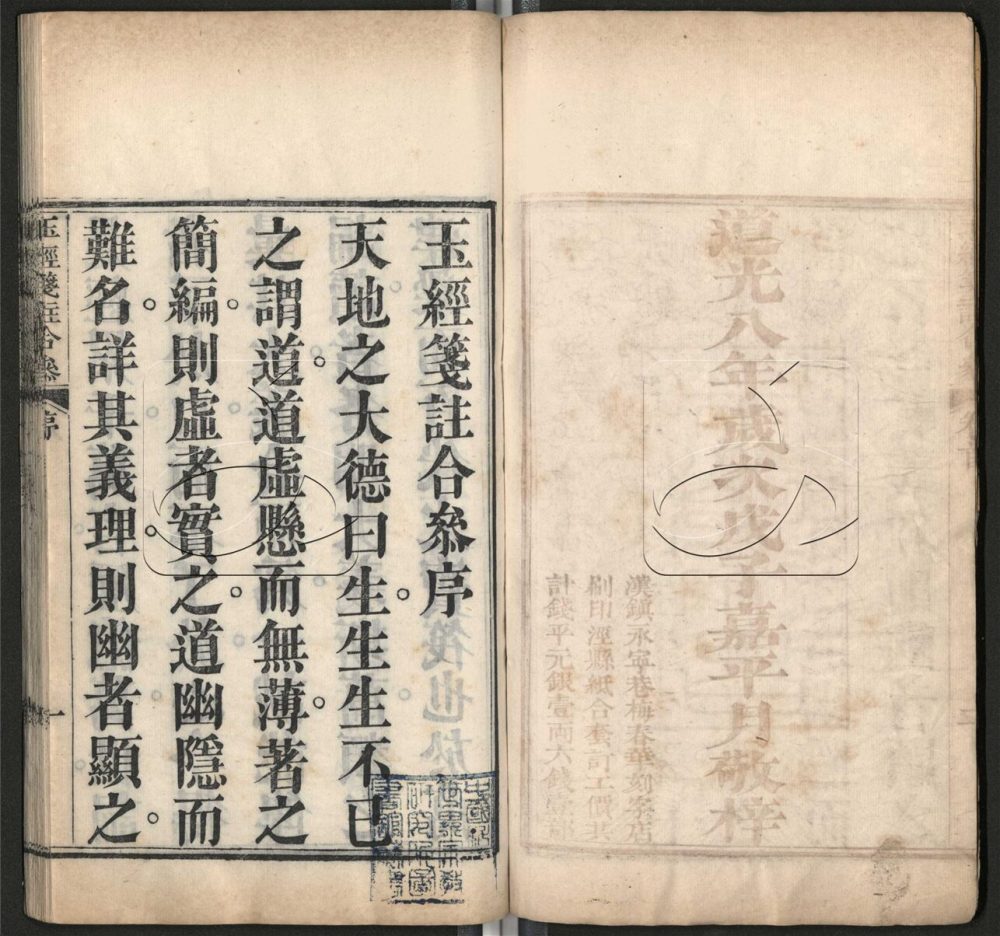 道光八年歲次戊子嘉平月敬梓
漢鎮永寧巷梅春華刻店
刷印涇縣紙合套訂工價共
計錢平元銀壹兩六錢壹部
玉經箋註合叅序
天地之大德曰生生生不已
之謂道道虛懸而無薄著之
簡編則虛者實之道幽隱而
難名詳其義理則幽者顯之
玉經箋註合叅 序 一
世界宗教
研究所圖
書館